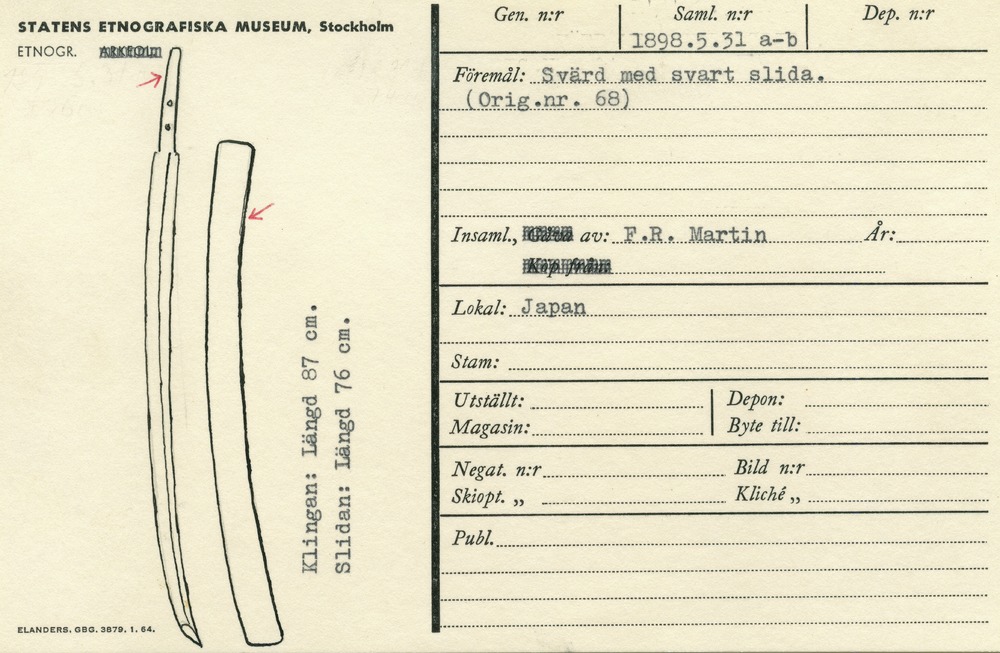 STATENS ETNOGRAFISKA MUSEUM, Stockholm
ETNOGR.
Klingan: Längd 87 cm.
Slidan: Längd 76 cm.
ELANDERS, GBG. 3879. 1. 64.
Gen. n:r Saml. n:r Dep. n:r
1898.5.31 a-b
Föremål: Svärd med svart slida.
(Orig.nr. 68)
Insaml., av: F.R. Martin År:
Köp från
Lokal: Japan
Stam:
Utställt: Depon:
Magasin: Byte till:
Negat. n:r Bild n:r
Skiopt. „ Kliché „
Publ.